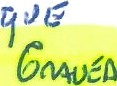 QUE
GRAVEDA